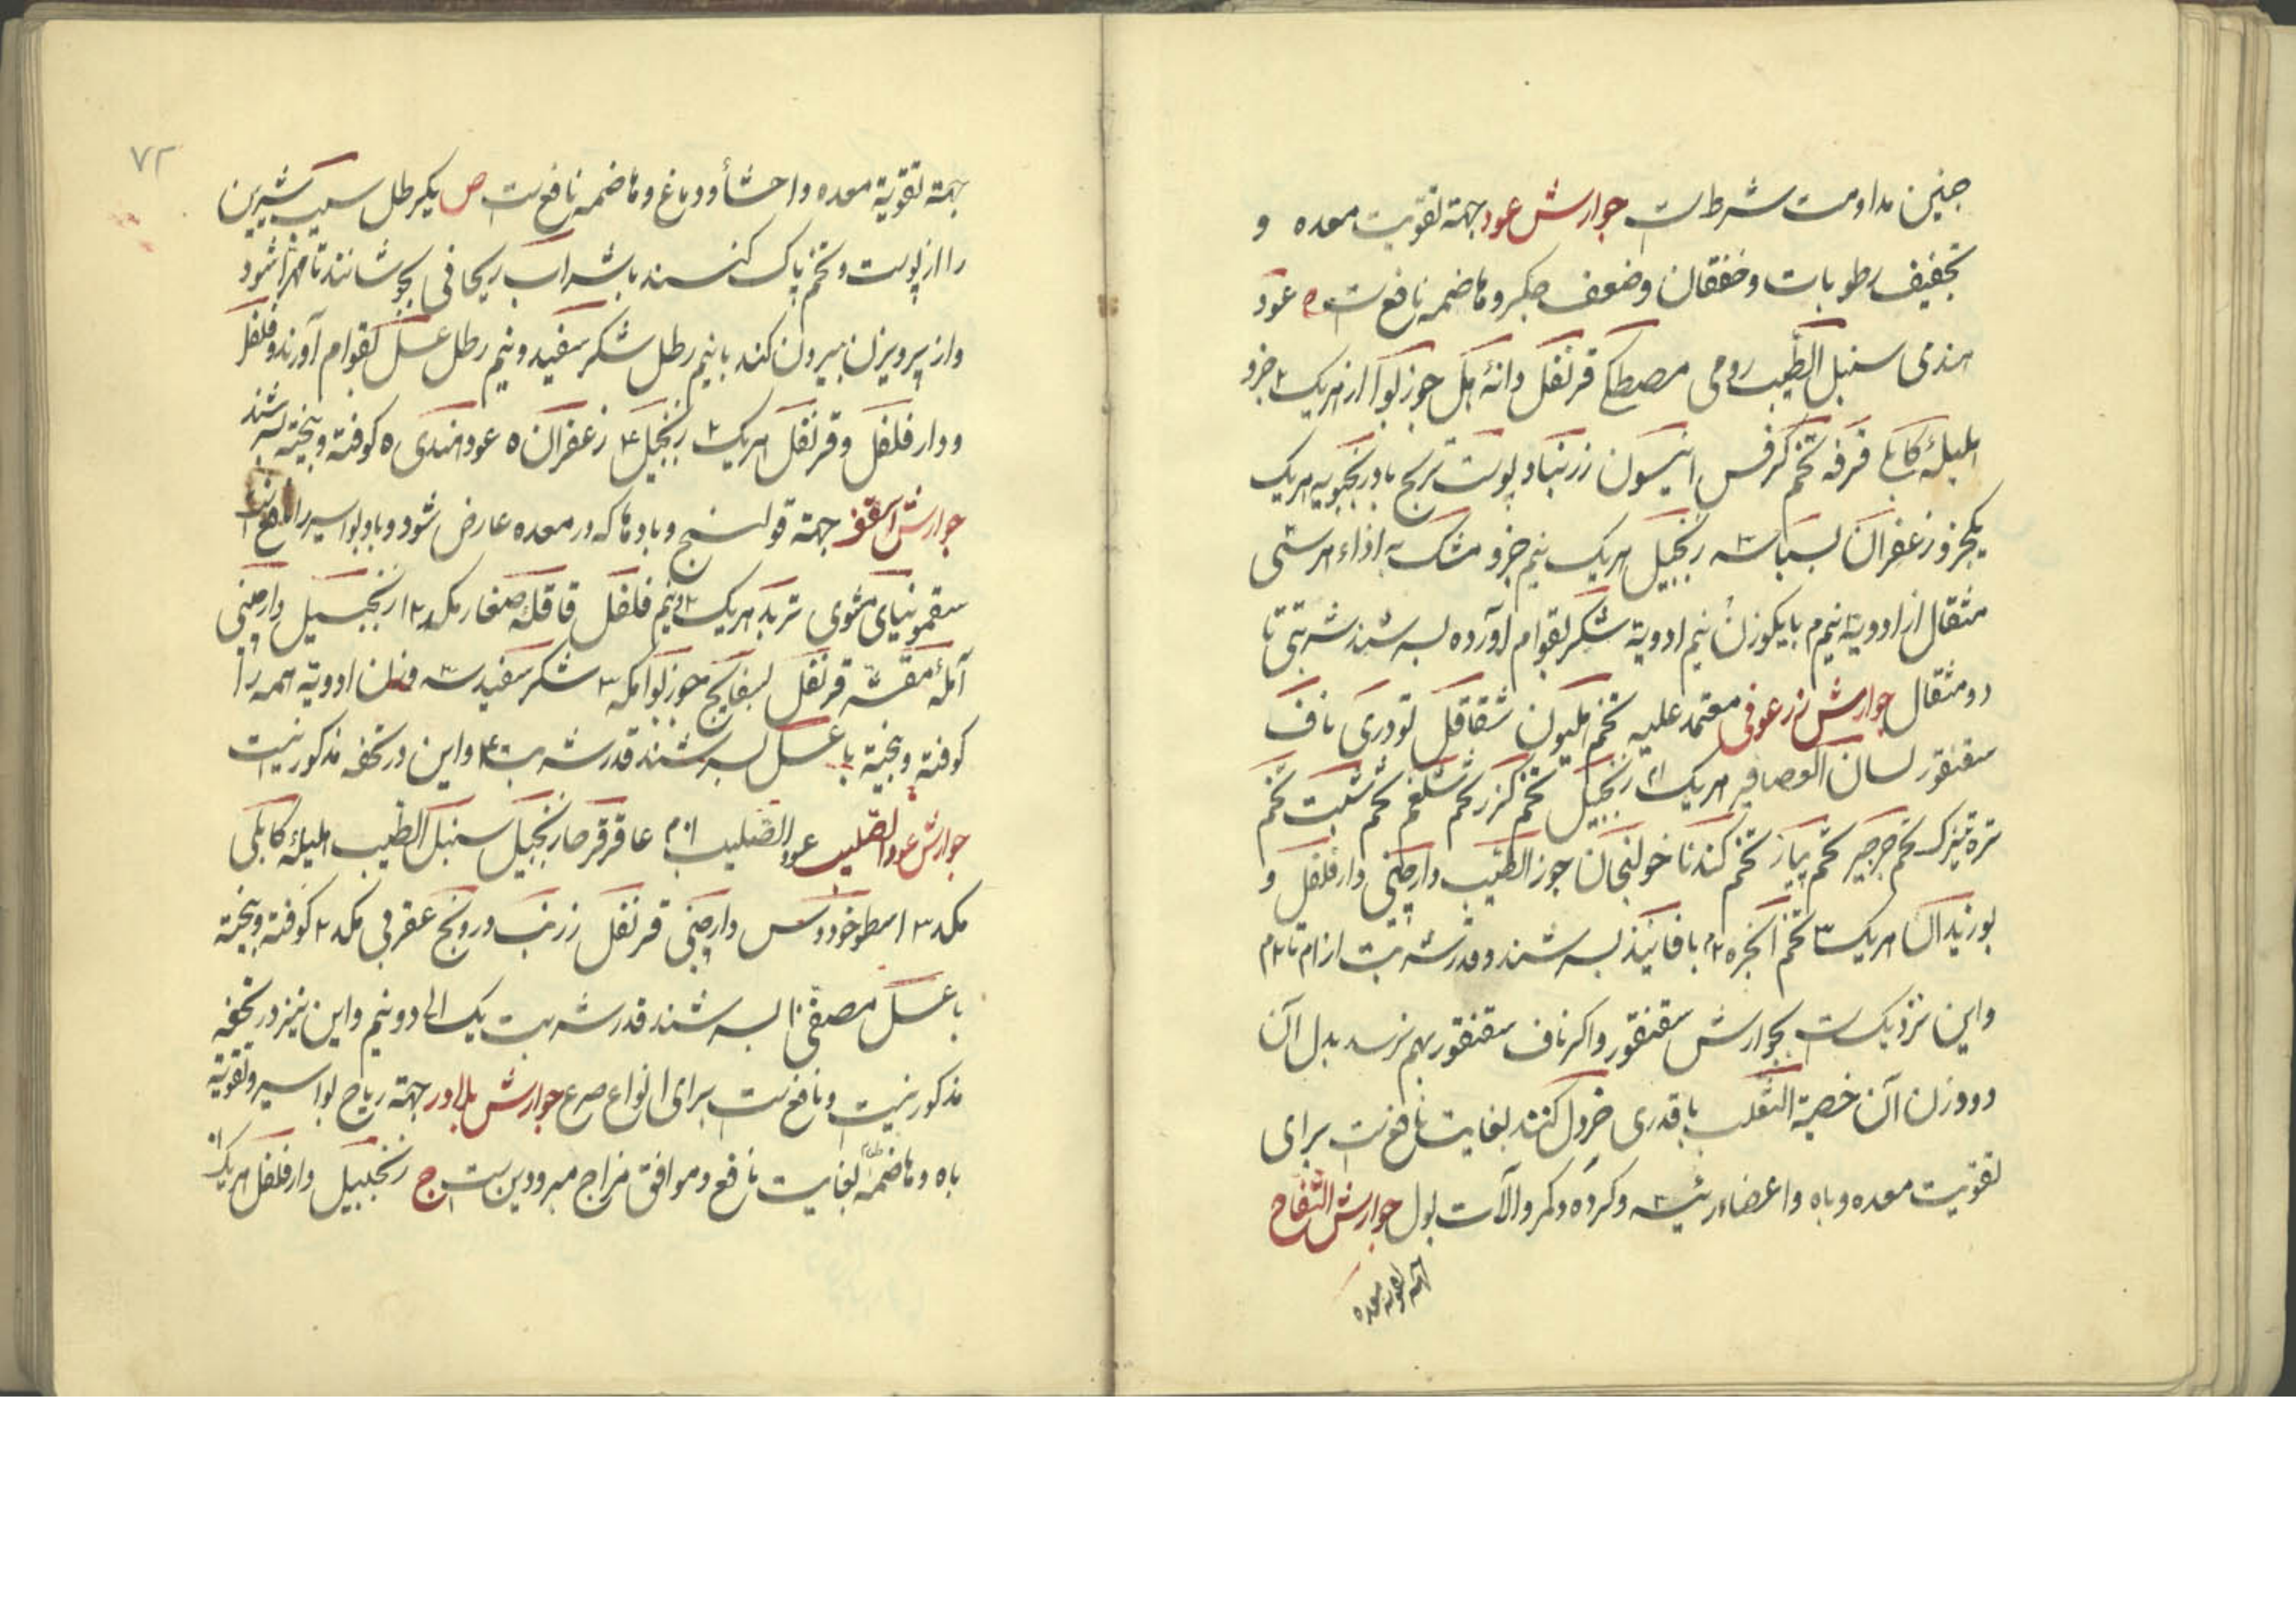 چنین مداومت شرطست جوارش عود جهة تقویت معده و
تجفیف رطوبات و خفقان و ضعف جکر و هاضمه نافعست ص عود
هندی سنبل الطیب رومی مصطکی قرنفل دانهٔ هل جوزبوا از هریک ۲ جزو
هلیلهٔ کابلی قرفه تخم کرفس انیسون زرنباد پوست ترنج بادرنجبویه هریک
یکجزو زعفران بسباسه زنجبیل هریک نیم جزو مشک به ازاء هر سی
مثقال از ادویة نیم م با یکوزن نیم ادویة شکر بقوام آورده بسرشند شربتی تا
دو مثقال جوارش زرعونی معتمد علیه تخم هلیون شقاقل تودری ناف
سقنقور لسان العصافیر هریک زنجبیل تخم کزر تخم شلغم تخم شبت تخم
تره تیزک تخم جرجیر تخم پیاز تخم کندنا خولنجان جوز الطیب دارچینی دارفلفل و
بوزیدان هریک ۳ تخم انجره ۲م با فانیذ بسرشند و قدر شربت از ۱م تا ۲م
و این نزدیکست بجوارش سقنقور و اکر ناف سقنقور بهم نرسد بدل آن
دو وزن آن خصیة الثعلب با قدری خردل کنند بغایت نافعست برای
تقویت معده و باه و اعضاء رئیسه و کرده و کمر و آلات بول جوارش التفاح
جهة تقویة معده
۷۲
جهة تقویة معده و احشأ و دماغ و هاضمه نافعست ص یکرطل سیب شیرین
را از پوست و تخم پاک کنند با شراب ریحانی بجوشانند تا مهرا شود
و از پرویزن بیرون کند با نیم رطل شکر سفید و نیم رطل عسل بقوام آورند و فلفل
و دارفلفل و قرنفل هریک ۲ زنجبیل ۴ زعفران ۵ عود هندی ۵ کوفته و بیخته بسرشند
جوارش اسقف جهة قولنج و بادها که در معده عارض شود و باد بواسیر را نافع
سقمونیای مشوی تربد هریک ۲ و نیم فلفل قاقلهٔ صغار مکد ۳ زنجبیل دارچینی
آملهٔ مقشّر قرنفل بسفایج جوزبوا مکد ۳ شکر سفید ادویة همه را
کوفته و بیخته با عسل بسرشند قدر شربت ۴ و این در تحفه مذکور نیست
جوارش عود الصلیب عود الصلیب ۱۰م عاقرقرحا زنجبیل سنبل الطیب هلیلهٔ کابلی
مکد ۳ اسطوخودوس دارچینی قرنفل زرنب درونج عقربی مکد ۲ کوفته و بیخته
با عسل مصفّی بسرشند قدر شربت یک الی دو نیم و این نیز در تحفه
مذکور نیست و نافعست برای انواع صرع جوارش بلادر جهة ریاح بواسیر و تقویة
باه و هاضمه بغایت نافع و موافق مزاج مبرودین ست ج زنجبیل دارفلفل هریک ۱۰